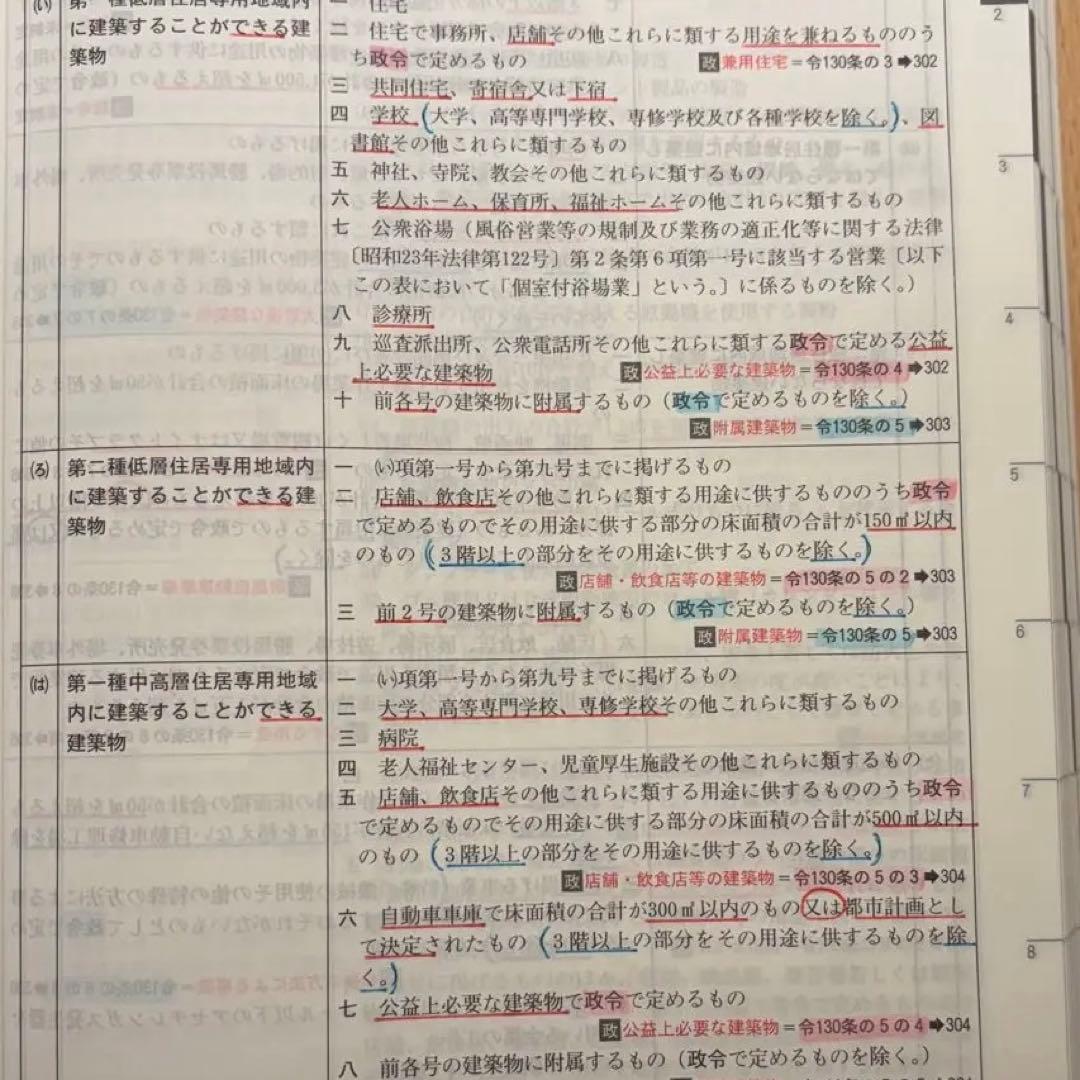 (い) 第一種低層住居専用地域内に建築することができる建築物
一 住宅
二 住宅で事務所、店舗その他これらに類する用途を兼ねるもののう
ち政令で定めるもの
政 兼用住宅＝令130条の3➡302
三 共同住宅、寄宿舎又は下宿
四 学校（大学、高等専門学校、専修学校及び各種学校を除く。）、図
書館その他これらに類するもの
五 神社、寺院、教会その他これらに類するもの
六 老人ホーム、保育所、福祉ホームその他これらに類するもの
七 公衆浴場（風俗営業等の規制及び業務の適正化等に関する法律
〔昭和23年法律第122号〕第2条第6項第一号に該当する営業〔以下
この表において「個室付浴場業」という。〕に係るものを除く。）
八 診療所
九 巡査派出所、公衆電話所その他これらに類する政令で定める公益
上必要な建築物
政 公益上必要な建築物＝令130条の4➡302
十 前各号の建築物に附属するもの（政令で定めるものを除く。）
政 附属建築物＝令130条の5➡303
(ろ) 第二種低層住居専用地域内
に建築することができる建
築物
一 (い)項第一号から第九号までに掲げるもの
二 店舗、飲食店その他これらに類する用途に供するもののうち政令
で定めるものでその用途に供する部分の床面積の合計が150㎡以内
のもの（3階以上の部分をその用途に供するものを除く。）
政 店舗・飲食店等の建築物＝令130条の5の2➡303
三 前2号の建築物に附属するもの（政令で定めるものを除く。）
政 附属建築物＝令130条の5➡303
(は) 第一種中高層住居専用地域
内に建築することができる
建築物
一 (い)項第一号から第九号までに掲げるもの
二 大学、高等専門学校、専修学校その他これらに類するもの
三 病院
四 老人福祉センター、児童厚生施設その他これらに類するもの
五 店舗、飲食店その他これらに類する用途に供するもののうち政令
で定めるものでその用途に供する部分の床面積の合計が500㎡以内
のもの（3階以上の部分をその用途に供するものを除く。）
政 店舗・飲食店等の建築物＝令130条の5の3➡304
六 自動車車庫で床面積の合計が300㎡以内のもの又は都市計画とし
て決定されたもの（3階以上の部分をその用途に供するものを除
く。）
七 公益上必要な建築物で政令で定めるもの
政 公益上必要な建築物＝令130条の5の4➡304
八 前各号の建築物に附属するもの（政令で定めるものを除く。）
2
3
4
5
6
7
8